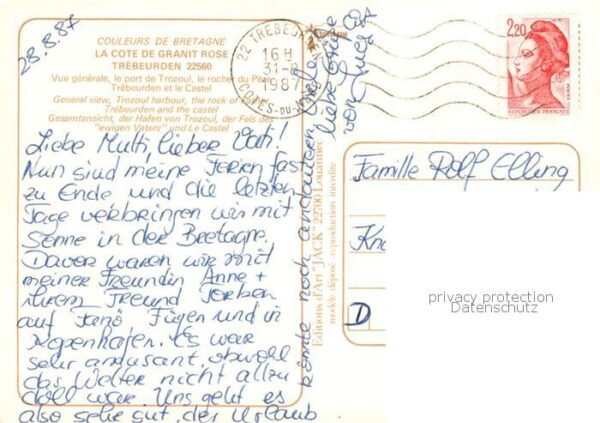 28.8.87
COULEURS DE BRETAGNE
LA COTE DE GRANIT ROSE
TRÉBEURDEN 22560
Vue générale, le port de Trozoul, le rocher du Père,
Trébeurden et le Castel
General view, Trozoul harbour, the rock of
Trébeurden and the castel
Gesamtansicht, der Hafen von Trozoul, der Fels des
"ewigen Vaters" und Le Castel
Liebe Mutti, lieber Vati!
Nun sind meine Ferien fast
zu Ende und die letzten
Tage verbringen wir mit
Sonne in der Bretagne.
Davor waren wir mit
meiner Freundin Anne +
ihrem Freund Torben
auf Fanö Fügen und in
Kopenhagen. Es war
sehr amüsant obwohl
das Wetter nicht allzu
doll war. Uns geht es
also sehr gut, der Urlaub
könnte noch andauern.
liebe Grüße
von
22 TREBEURDEN
16 H
31-8
1987
COTES-DU-NORD
Editions d'Art "JACK" 22700 Louannec
modèle déposé - reproduction interdite
2,20
REPUBLIQUE FRANÇAISE
Familie Rolf Elling
Kn
D
privacy protection
Datenschutz